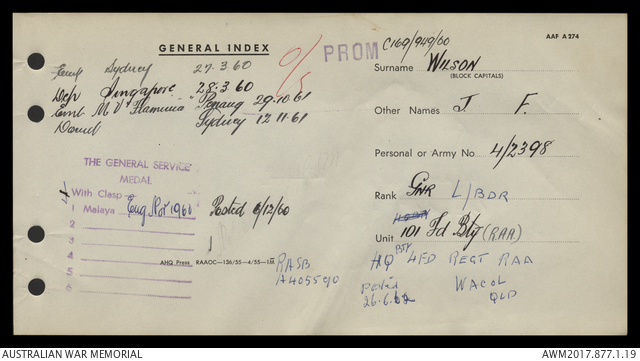 AAF A274
GENERAL INDEX
PROM
C169/949/60
Surname WILSON
(BLOCK CAPITALS)
Emb Sydney 27.3.60
Dep Singapore 28.3.60
Emb M V "Flaminia" Penang 29.10.61
Sydney 12.11.61
O/S
Other Names J. F.
Personal or Army No. 4/2398
THE GENERAL SERVICE
MEDAL
With Clasp
1 Malaya Nov 1960 Posted 6/12/60
2
3
4
5
6
Rank GNR L/BDR
Unit 101 Fd Bty (RAA)
HQ BTY 4FD REGT RAA
Posted
26.6.62
WACOL
QLD
AHQ Press RAAOC—136/55—4/55—1M
RASB
A405590
AUSTRALIAN WAR MEMORIAL
AWM2017.877.1.19